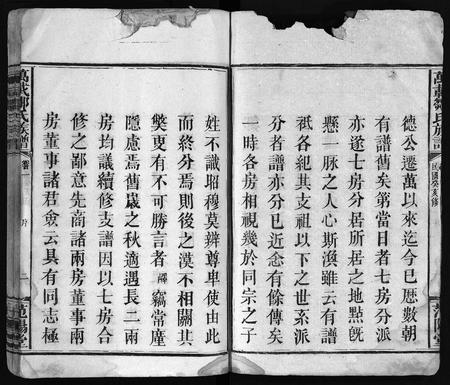 萬載鄒氏族譜
民國癸亥修
范陽堂
德公遷萬以來迄今已歷數朝
有譜舊矣第當日者七房分派
亦遂七房分居所居之地點旣
懸一脉之人心斯渙雖云有譜
祇各紀其支祖以下之世系派
分者譜亦分已近忿有餘傳矣
一時各房相視幾於同宗之子
姓不識昭穆莫辨尊卑使由此
而終分焉則後之漠不相關其
獘更有不可勝言者竊常廑
隱慮焉舊歲之秋適遇長二兩
房均議續修支譜因以七房合
修之鄙意先商諸兩房董事兩
房董事諸君僉云具有同志極
萬載鄒氏族譜
卷首
序
二
范陽堂